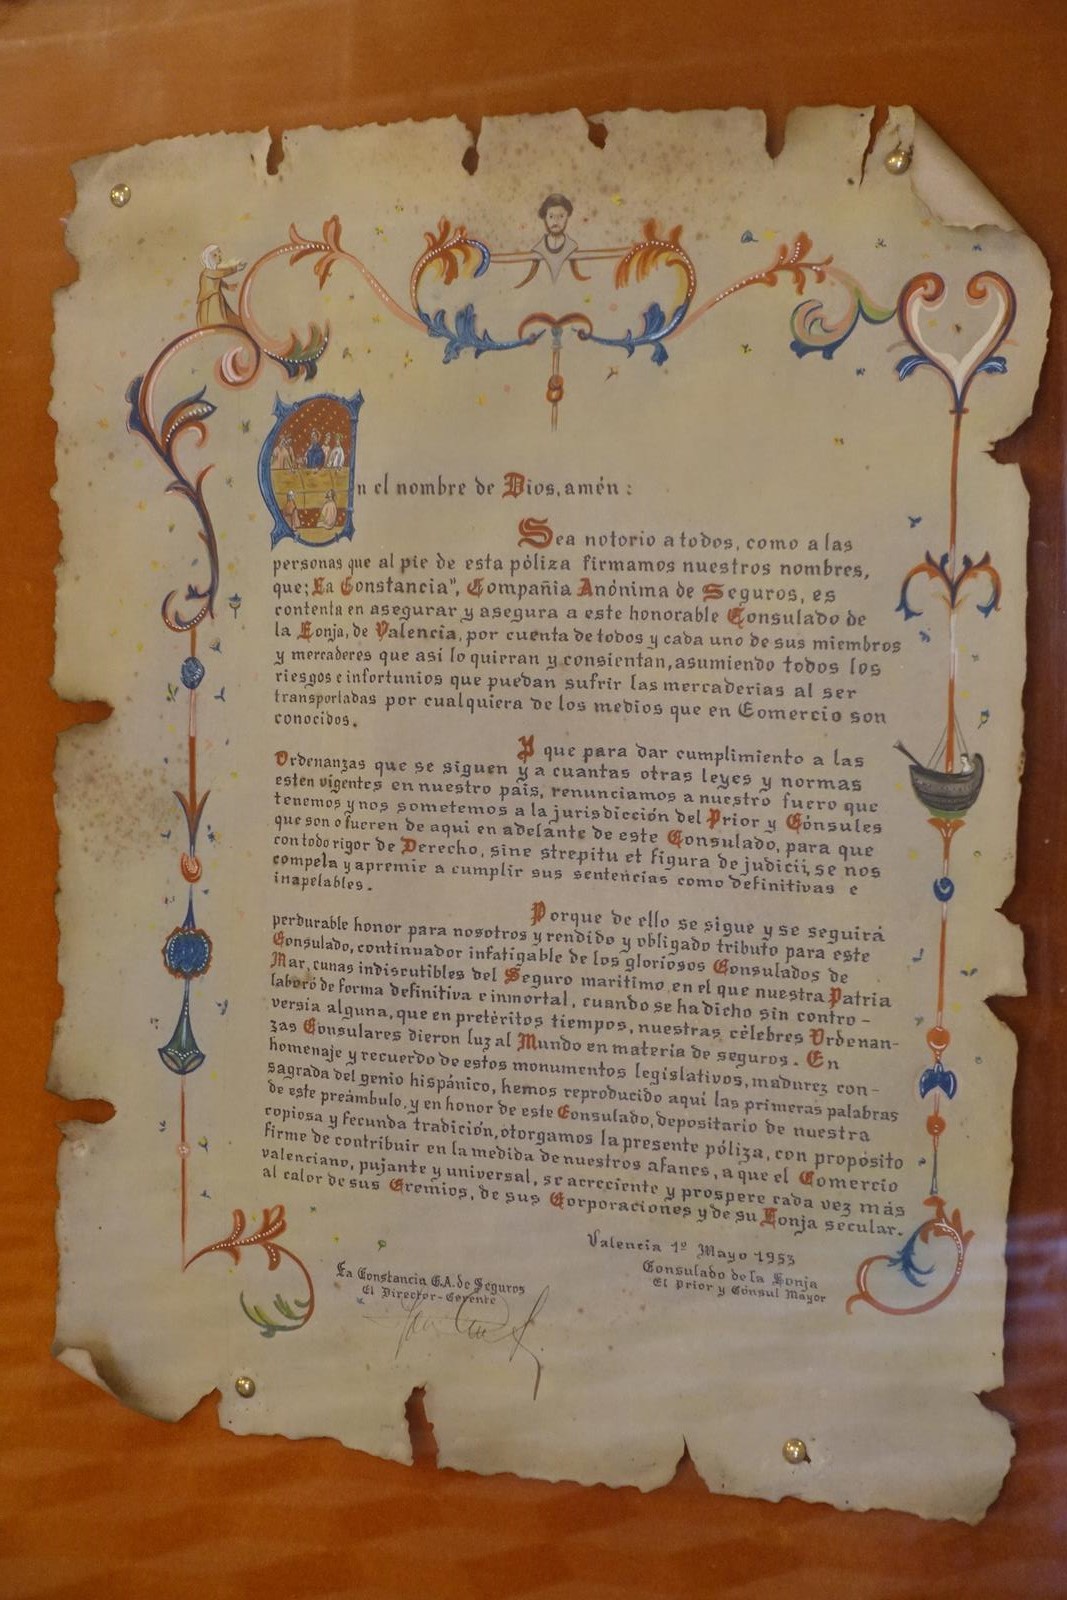 En el nombre de Dios, amén:
Sea notorio a todos, como a las
personas que al pie de esta póliza firmamos nuestros nombres,
que: La Constancia", Compañia Anónima de Seguros, es
contenta en asegurar y asegura a este honorable Consulado de
la Lonja, de Valencia, por cuenta de todos y cada uno de sus miembros
y mercaderes que asi lo quieran y consientan, asumiendo todos los
riesgos e infortunios que puedan sufrir las mercaderias al ser
transportadas por cualquiera de los medios que en Comercio son
conocidos.
Y que para dar cumplimiento a las
Ordenanzas que se siguen y a cuantas otras leyes y normas
esten vigentes en nuestro pais, renunciamos a nuestro fuero que
tenemos y nos sometemos a la jurisdicción del Prior y Cónsules
que son o fueren de aqui en adelante de este Consulado, para que
con todo rigor de Derecho, sine strepitu et figura de judicii, se nos
compela y apremie a cumplir sus sentencias como definitivas e
inapelables.
Porque de ello se sigue y se seguirá
perdurable honor para nosotros y rendido y obligado tributo para este
Consulado, continuador infatigable de los gloriosos Consulados de
Mar, cunas indiscutibles del Seguro maritimo, en el que nuestra Patria
laboró de forma definitiva e inmortal, cuando se ha dicho sin contro-
versia alguna, que en pretéritos tiempos, nuestras célebres Ordenan-
zas Consulares dieron luz al Mundo en materia de seguros. En
homenaje y recuerdo de estos monumentos legislativos, madurez con-
sagrada del genio hispánico, hemos reproducido aqui las primeras palabras
de este preámbulo, y en honor de este Consulado, depositario de nuestra
copiosa y fecunda tradición, otorgamos la presente póliza, con propósito
firme de contribuir en la medida de nuestros afanes, a que el Comercio
valenciano, pujante y universal, se acreciente y prospere cada vez más
al calor de sus Gremios, de sus Corporaciones y de su Lonja secular.
Valencia 1º Mayo 1953
La Constancia C.A. de Seguros
El Director-Gerente
Consulado de la Lonja
El Prior y Cónsul Mayor